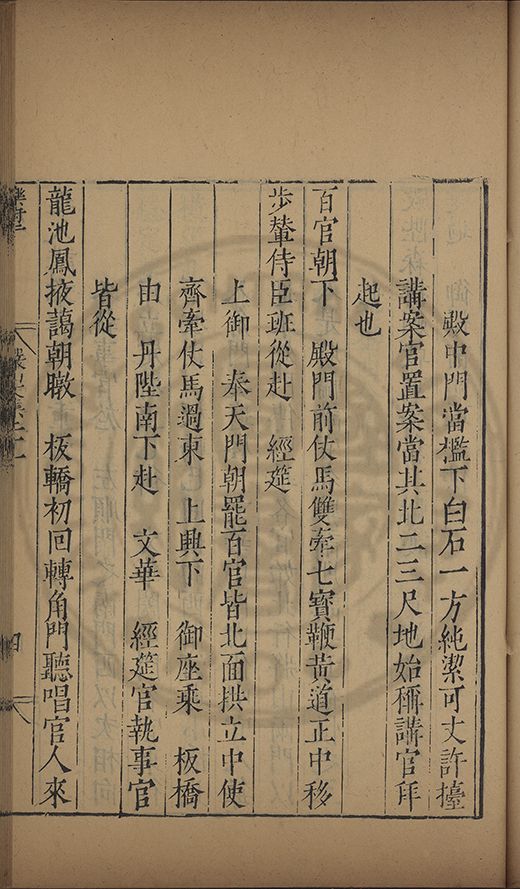 殿中門當檻下白石一方純潔可丈許擡
講案官置案當其北二三尺地始稱講官拜
起也
百官朝下　殿門前仗馬雙牽七寶鞭黃道正中移
步輦侍臣班從赴　經筵
上御　奉天門朝罷百官皆北面拱立中使
齊牽仗馬過東　上興下　御座乘　板橋
由　丹陛南下赴　文華　經筵官執事官
皆從
龍池鳳掖藹朝暾　板轎初回轉角門聽唱官人來
四